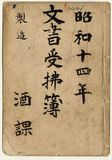 昭和十四年
文書受払簿
製造
酒課